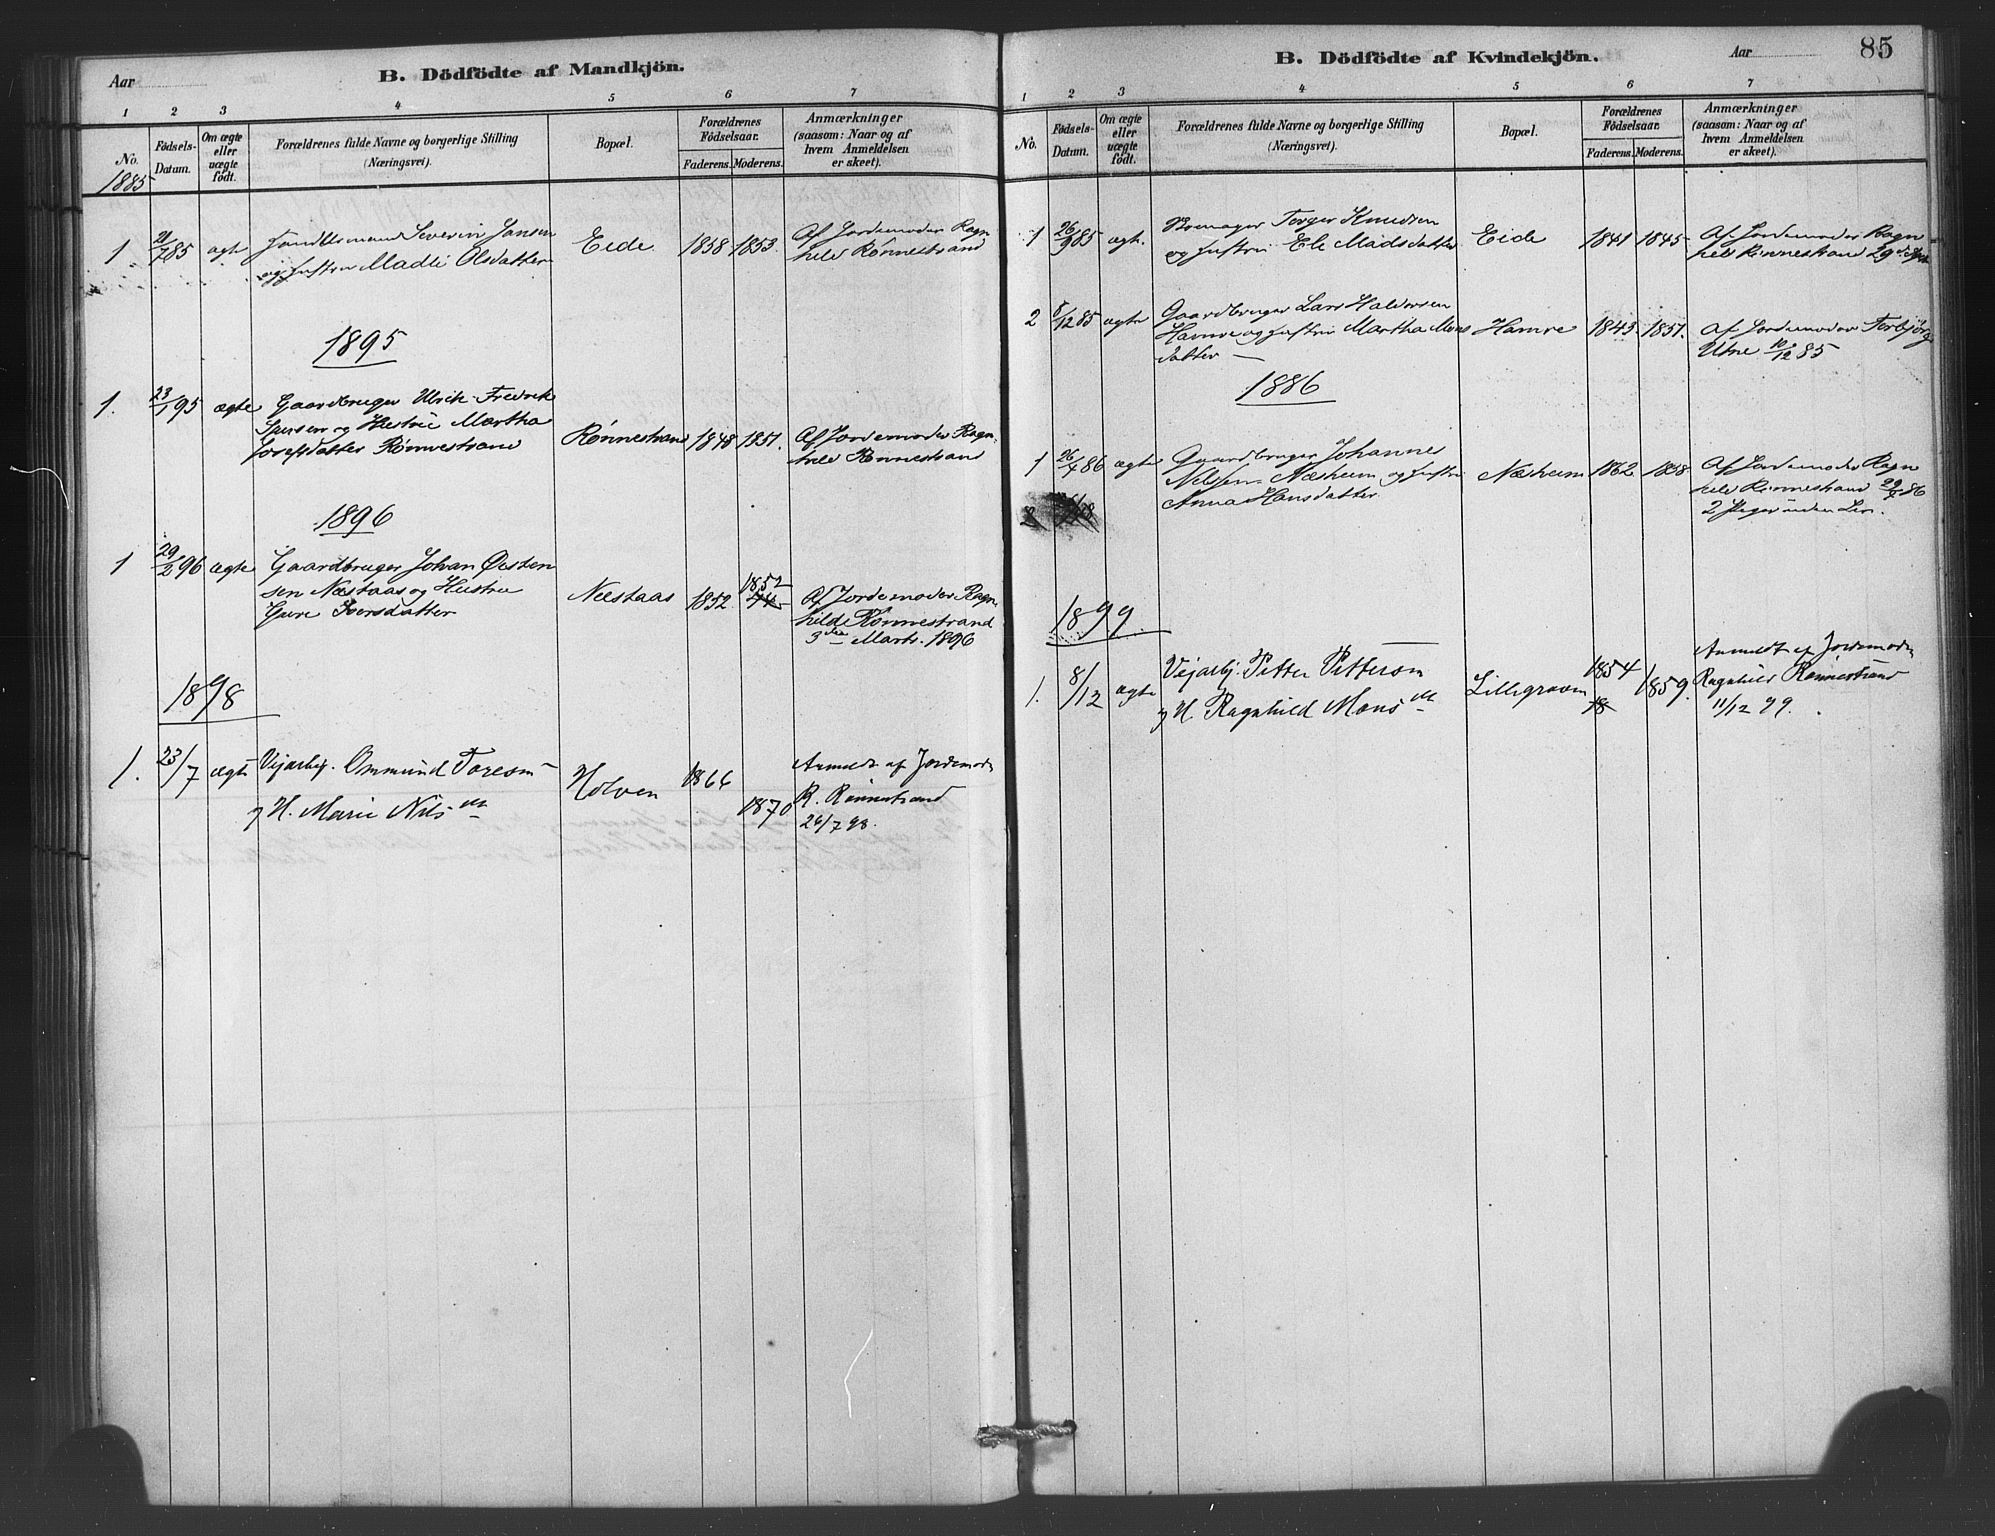 Aar
B. Dödfödte af Mandkjön.
1 2 3 4 5 6 7
No.
Födsels-Datum.
Om ægte eller uægte födt.
Forældrenes fulde Navne og borgerlige Stilling
(Næringsvei).
Bopæl.
Forældrenes Födselsaar.
Faderens. Moderens.
Anmærkninger
(saasom: Naar og af
hvem Anmeldelsen
er skeet).
1885
1 21/7 85 ægt. Handelsmand Severin Jansen
og Hustru Madli Olsdatter
Eide 1838 1853.
Af Jordemoder Ragn
hild Rønnestrand
1895
1. 23/1 95 ægte Gaardbruger Ulrik Fredrik
og Hustru Martha
Josefsdatter Rønnestrand
Rønnestrand 1848 1851.
Af Jordemoder Ragn
hild Rønnestrand
1896
1 29/2 96 ægte Gaardbruger Johan Østen
sen Næstaas og Hustru
Gure Iversdatter
Næstaas 1852. 1852
Af Jordemoder Ragn
hild Rønnestrand
3die Marts 1896
1898
1. 23/7 ægte Vejarbej. Ommund Toresen
og H. Marie Nilsdtr
Holven 1866 1870
Anmeldt af Jordemod.
R. Rønnestrand
26/7 98.
B. Dödfödte af Kvindekjön.
Aar
85
1 2 3 4 5 6 7
No.
Födsels-Datum.
Om ægte eller uægte födt.
Forældrenes fulde Navne og borgerlige Stilling
(Næringsvei).
Bopæl.
Forældrenes Födselsaar.
Faderens. Moderens.
Anmærkninger
(saasom: Naar og af
hvem Anmeldelsen
er skeet).
1 26/9 85 ægt. Skomager Torger Knudsen
og Hustru Eli Madsdatter
Eide 1841 1845
Af Jordemoder Ragn
hild Rønnestrand 29de
2 8/12 85 ægte Gaardbruger Lars Haldorsen
Hamre og Hustru Martha Mons
datter
Hamre 1843 1851.
Af Jordemoder Torbjørg
Utne 10/12 85
1886
1 26/7 86 ægte Gaardbruger Johannes
Nilssen Næsheim og Hustru
Anna Hansdatter
Næsheim 1862 1858
Af Jordemoder Ragn
hild Rønnestrand 29/7 86
2 Piger uden Liv.
2
1899.
1. 8/12 ægte Vejarbj. Petter Pettersen
og H. Ragnhild Monsdtr
Lillegraven 1854 1859.
Anmeldt af Jordemoder
Ragnhild Rønnestrand
11/12 99.